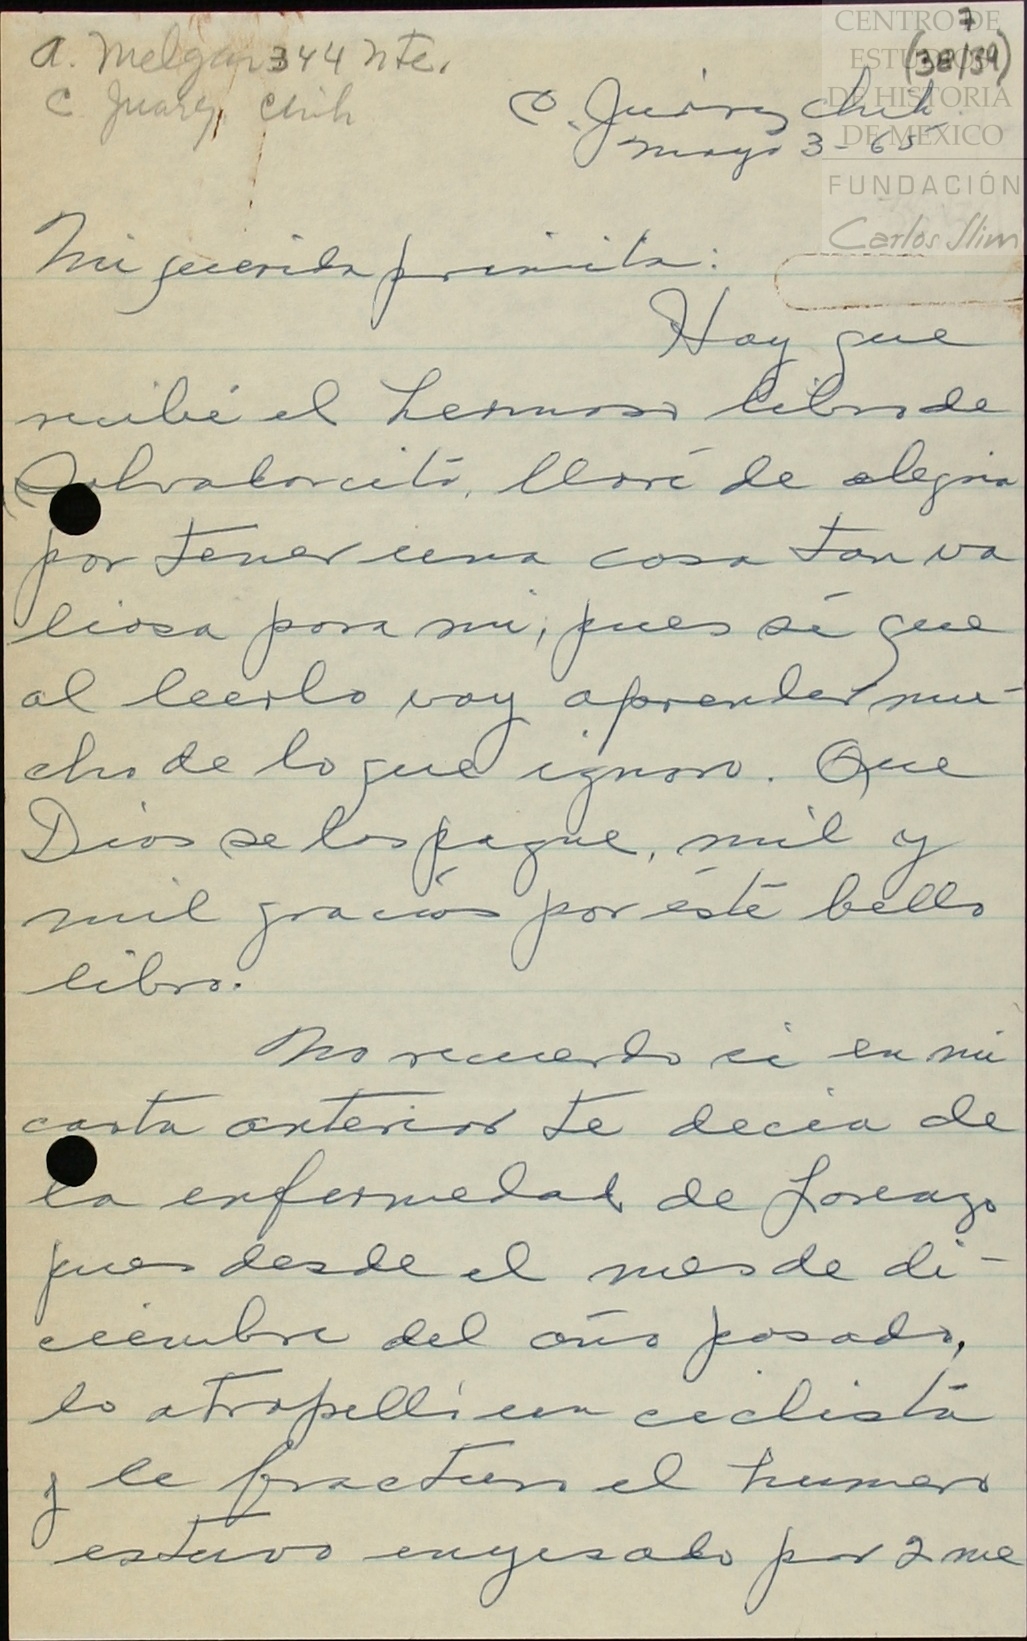 7
(38/39)
CENTRO DE
ESTUDIOS
DE HISTORIA
DE MÉXICO
FUNDACIÓN
Carlos Slim
A. Melgar 344 Nte.
C. Juarez, Chih
C. Juárez Chih.
mayo 3-65
Mi querida primita:
Hoy que
recibí el hermoso libro de
Salvadorcito, lloré de alegria
por tener una cosa tan va
liosa para mi, pues sé que
al leerlo voy aprender mu-
cho de lo que ignoro. Que
Dios se los pague, mil y
mil gracias por éste bello
libro.
No recuerdo si en mi
carta anterior te decia de
la enfermedad de Lorenzo
pues desde el mes de di-
ciembre del año pasado,
lo atropelló un ciclista
y le fracturo el humero
estuvo enyesado por 2 me